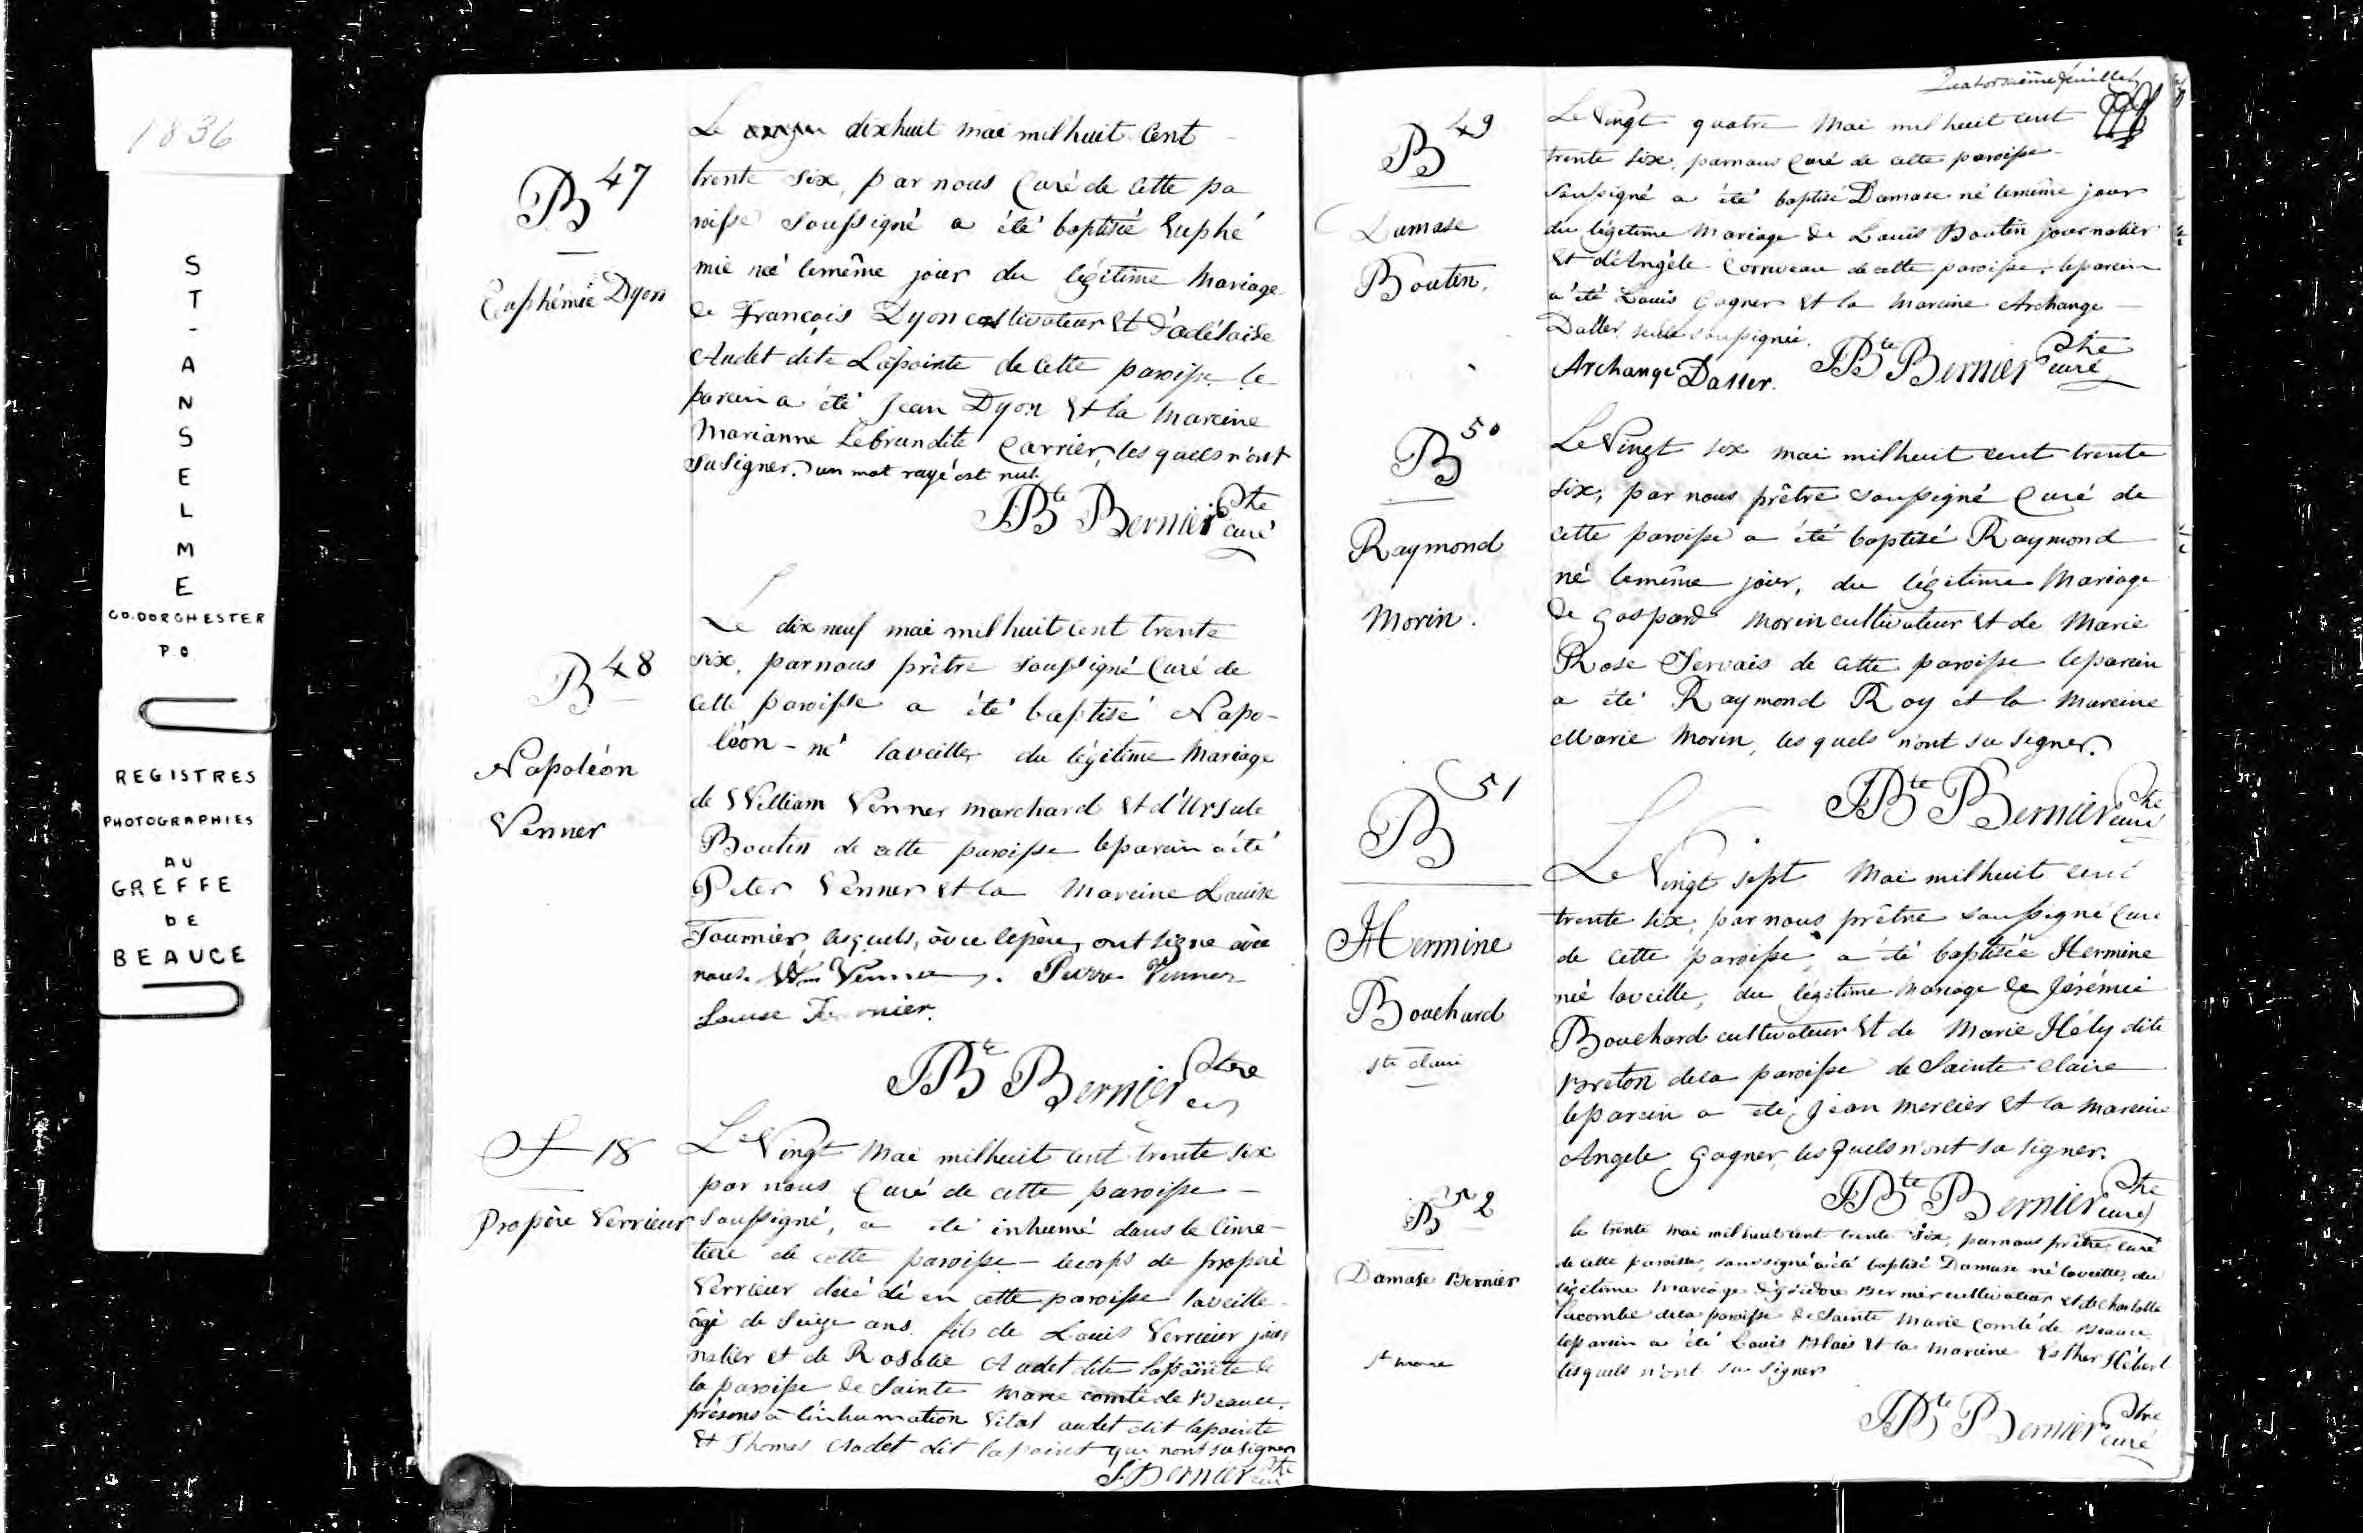 1836
S
T
-
A
N
S
E
L
M
E
CO. DORCHESTER
P.Q
REGISTRES
PHOTOGRAPHIES
AU
GREFFE
DE
BEAUCE
B 47
Euphémie Dyon
Le dixhuit mai mil huit Cent
trente Six, par nous Curé de Cette pa
roisse Soussigné a été baptisée Euphé
mie née lemême jour du légitime Mariage
de François Dyon cultivateur et d'adélaide
Audet dite Lapointe de Cette paroisse le
parain a été Jean Dyon et la Maraine
Marianne Lebrundite Carrier, les quels n'ont
su signer. un mot rayé est nul.
JBte Bernier Ptre
curé
B 48
Napoléon
Venner
Le dix neuf mai mil huit cent trente
six, par nous prêtre soussigné Curé de
cette paroisse a été baptisé Napo-
léon - né laveille, du légitime Mariage
de William Venner marchand et d'Ursule
Boutin de cette paroisse leparain a été
Peter Venner et la Maraine Louise
Fournier, lesquels, avec lepère, ont signé avec
nous. Wm Venner. Pierre Venner
Louise Fournier.
JBte Bernier Ptre
S 18
Propère Verrieur
Le Vingt Mai milhuit cent trente six
par nous Curé de cette paroisse -
soussigné, a été inhumé dans le Cime-
tière de cette paroisse - lecorps de propère
Verrieur décédé en cette paroisse laveille
âgé de Seize ans, fils de Louis Verrieur jour
nalier et de Rosalie Audet dite lapointe de
la paroisse de Sainte Marie comté de Beauce.
présens à l'inhumation Vital audet dit lapointe
et Thomas Audet dit lapoint qui nont su signer
J.Bernier Ptre
Quatorzième feuillet
B 49
Damase
Boutin.
Le Vingt quatre Mai mil huit cent
trente six, parnous Curé de cette paroisse
soussigné a été baptisé Damase né lemême jour
du légitime Mariage de Louis Boutin journalier
et d'Angèle Corriveau de cette paroisse, leparain
a été Louis Gagner et la Maraine Archange
Daller seule soussignée.
Archange Daller.
JBte Bernier Ptre
curé
B 50
Raymond
Morin.
Le Vingt six mai milhuit cent trente
six, par nous prêtre soussigné Curé de
cette paroisse a été baptisé Raymond
né lemême jour, du légitime Mariage
de Gaspard Morin cultivateur et de Marie
Rose Servais de cette paroisse leparain
a été Raymond Roy et la Maraine
Marie Morin, les quels n'ont su signer.
JBte Bernier Ptre
curé
B 51
Hermine
Bouchard
Ste Claire
Le Vingt sept Mai milhuit cent
trente six, par nous prêtre soussigné Curé
de cette paroisse, a été baptisée Hermine
née laveille, du légitime Mariage de Jérémie
Bouchard cultivateur et de Marie Hély dite
Breton dela paroisse de Sainte Claire
leparain a été, Jean Mercier et la maraine
Angele Gagner, les quels n'ont su signer.
JBte Bernier Ptre
curé
B 52
Damase Bernier
Ste Marie
le trente mai mil huit cent trente Six, parnous prêtre curé
de cette paroisse, soussigné a été baptisé Damase né laveille, du
légitime Mariage d'Isidore Bernier cultivateur et de Charlotte
Lacombe dela paroisse de Sainte Marie Comté de Beauce
leparain a été Louis Blais et la Maraine Esther Hébert
lesquels n'ont su signer
JBte Bernier Ptre
curé